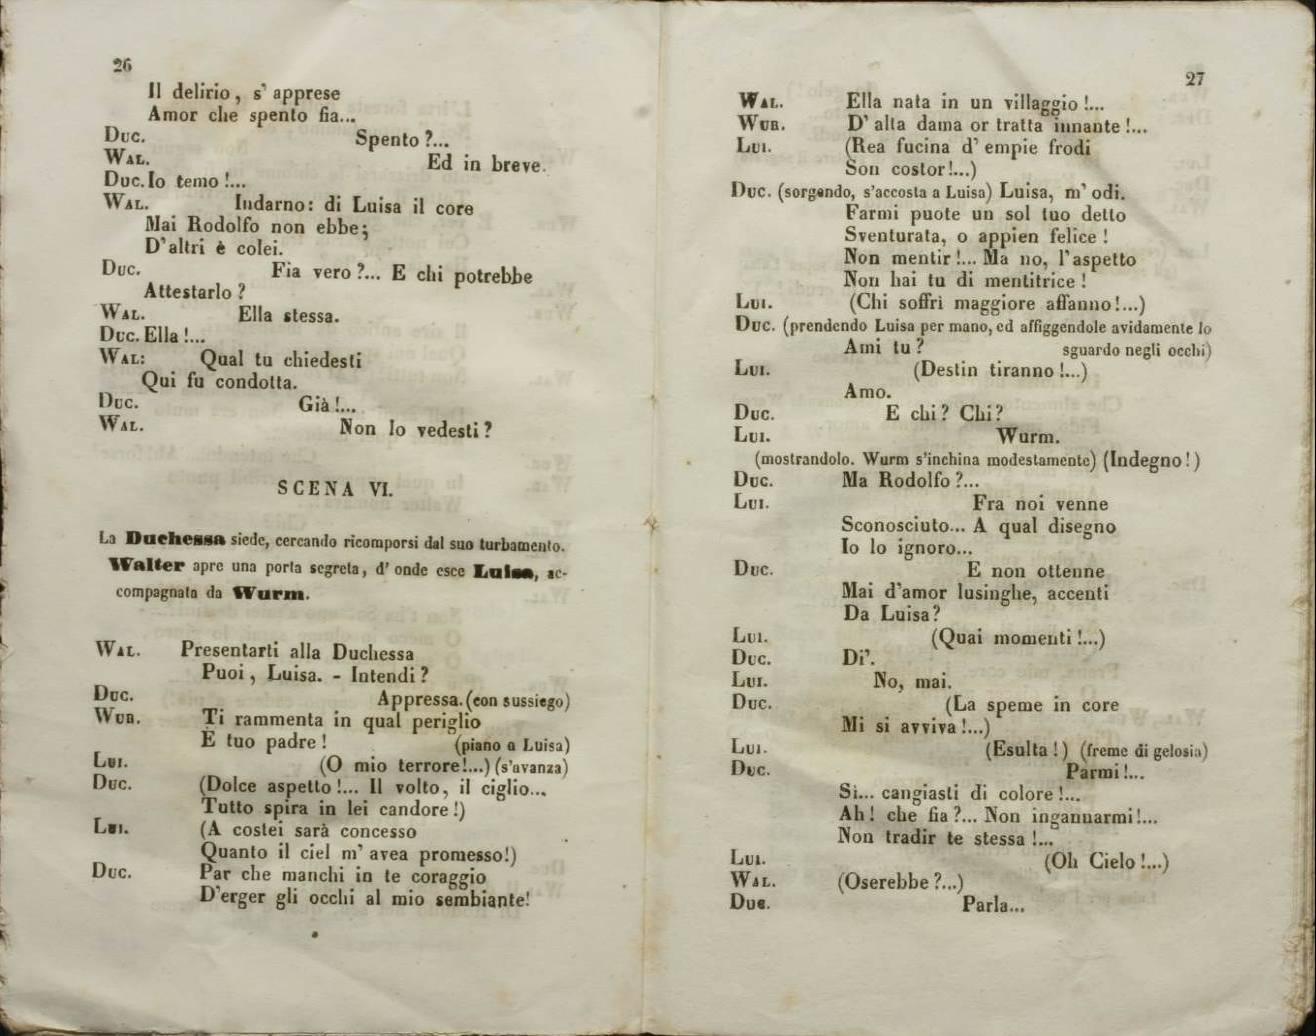 26
Il delirio, s' apprese
Amor che spento fia...
Duc. Spento?...
Wal. Ed in breve.
Duc. Io temo!...
Wal. Indarno: di Luisa il core
Mai Rodolfo non ebbe;
D'altri è colei.
Duc. Fia vero?... E chi potrebbe
Attestarlo?
Wal. Ella stessa.
Duc. Ella!...
Wal: Qual tu chiedesti
Qui fu condotta.
Duc. Già!...
Wal. Non lo vedesti?
SCENA VI.
La Duchessa siede, cercando ricomporsi dal suo turbamento.
Walter apre una porta segreta, d' onde esce Luisa, ac-
compagnata da Wurm.
Wal. Presentarti alla Duchessa
Puoi, Luisa. - Intendi?
Duc. Appressa. (con sussiego)
Wur. Ti rammenta in qual periglio
È tuo padre! (piano a Luisa)
Lui. (O mio terrore!...) (s'avanza)
Duc. (Dolce aspetto!... Il volto, il ciglio...
Tutto spira in lei candore!)
Lui. (A costei sarà concesso
Quanto il ciel m' avea promesso!)
Duc. Par che manchi in te coraggio
D'erger gli occhi al mio sembiante!
27
Wal. Ella nata in un villaggio!...
Wur. D' alta dama or tratta innante!...
Lui. (Rea fucina d' empie frodi
Son costor!...)
Duc. (sorgendo, s'accosta a Luisa) Luisa, m' odi.
Farmi puote un sol tuo detto
Sventurata, o appien felice!
Non mentir!... Ma no, l'aspetto
Non hai tu di mentitrice!
Lui. (Chi soffrì maggiore affanno!...)
Duc. (prendendo Luisa per mano, ed affiggendole avidamente lo
Ami tu? sguardo negli occhi)
Lui. (Destin tiranno!...)
Amo.
Duc. E chi? Chi?
Lui. Wurm.
(mostrandolo. Wurm s'inchina modestamente) (Indegno!)
Duc. Ma Rodolfo?...
Lui. Fra noi venne
Sconosciuto... A qual disegno
Io lo ignoro...
Duc. E non ottenne
Mai d'amor lusinghe, accenti
Da Luisa?
Lui. (Quai momenti!...)
Duc. Di'.
Lui. No, mai.
Duc. (La speme in core
Mi si avviva!...)
Lui. (Esulta!) (freme di gelosia)
Duc. Parmi!...
Si... cangiasti di colore!...
Ah! che fia?... Non ingannarmi!...
Non tradir te stessa!...
Lui. (Oh Cielo!...)
Wal. (Oserebbe?...)
Duc. Parla...